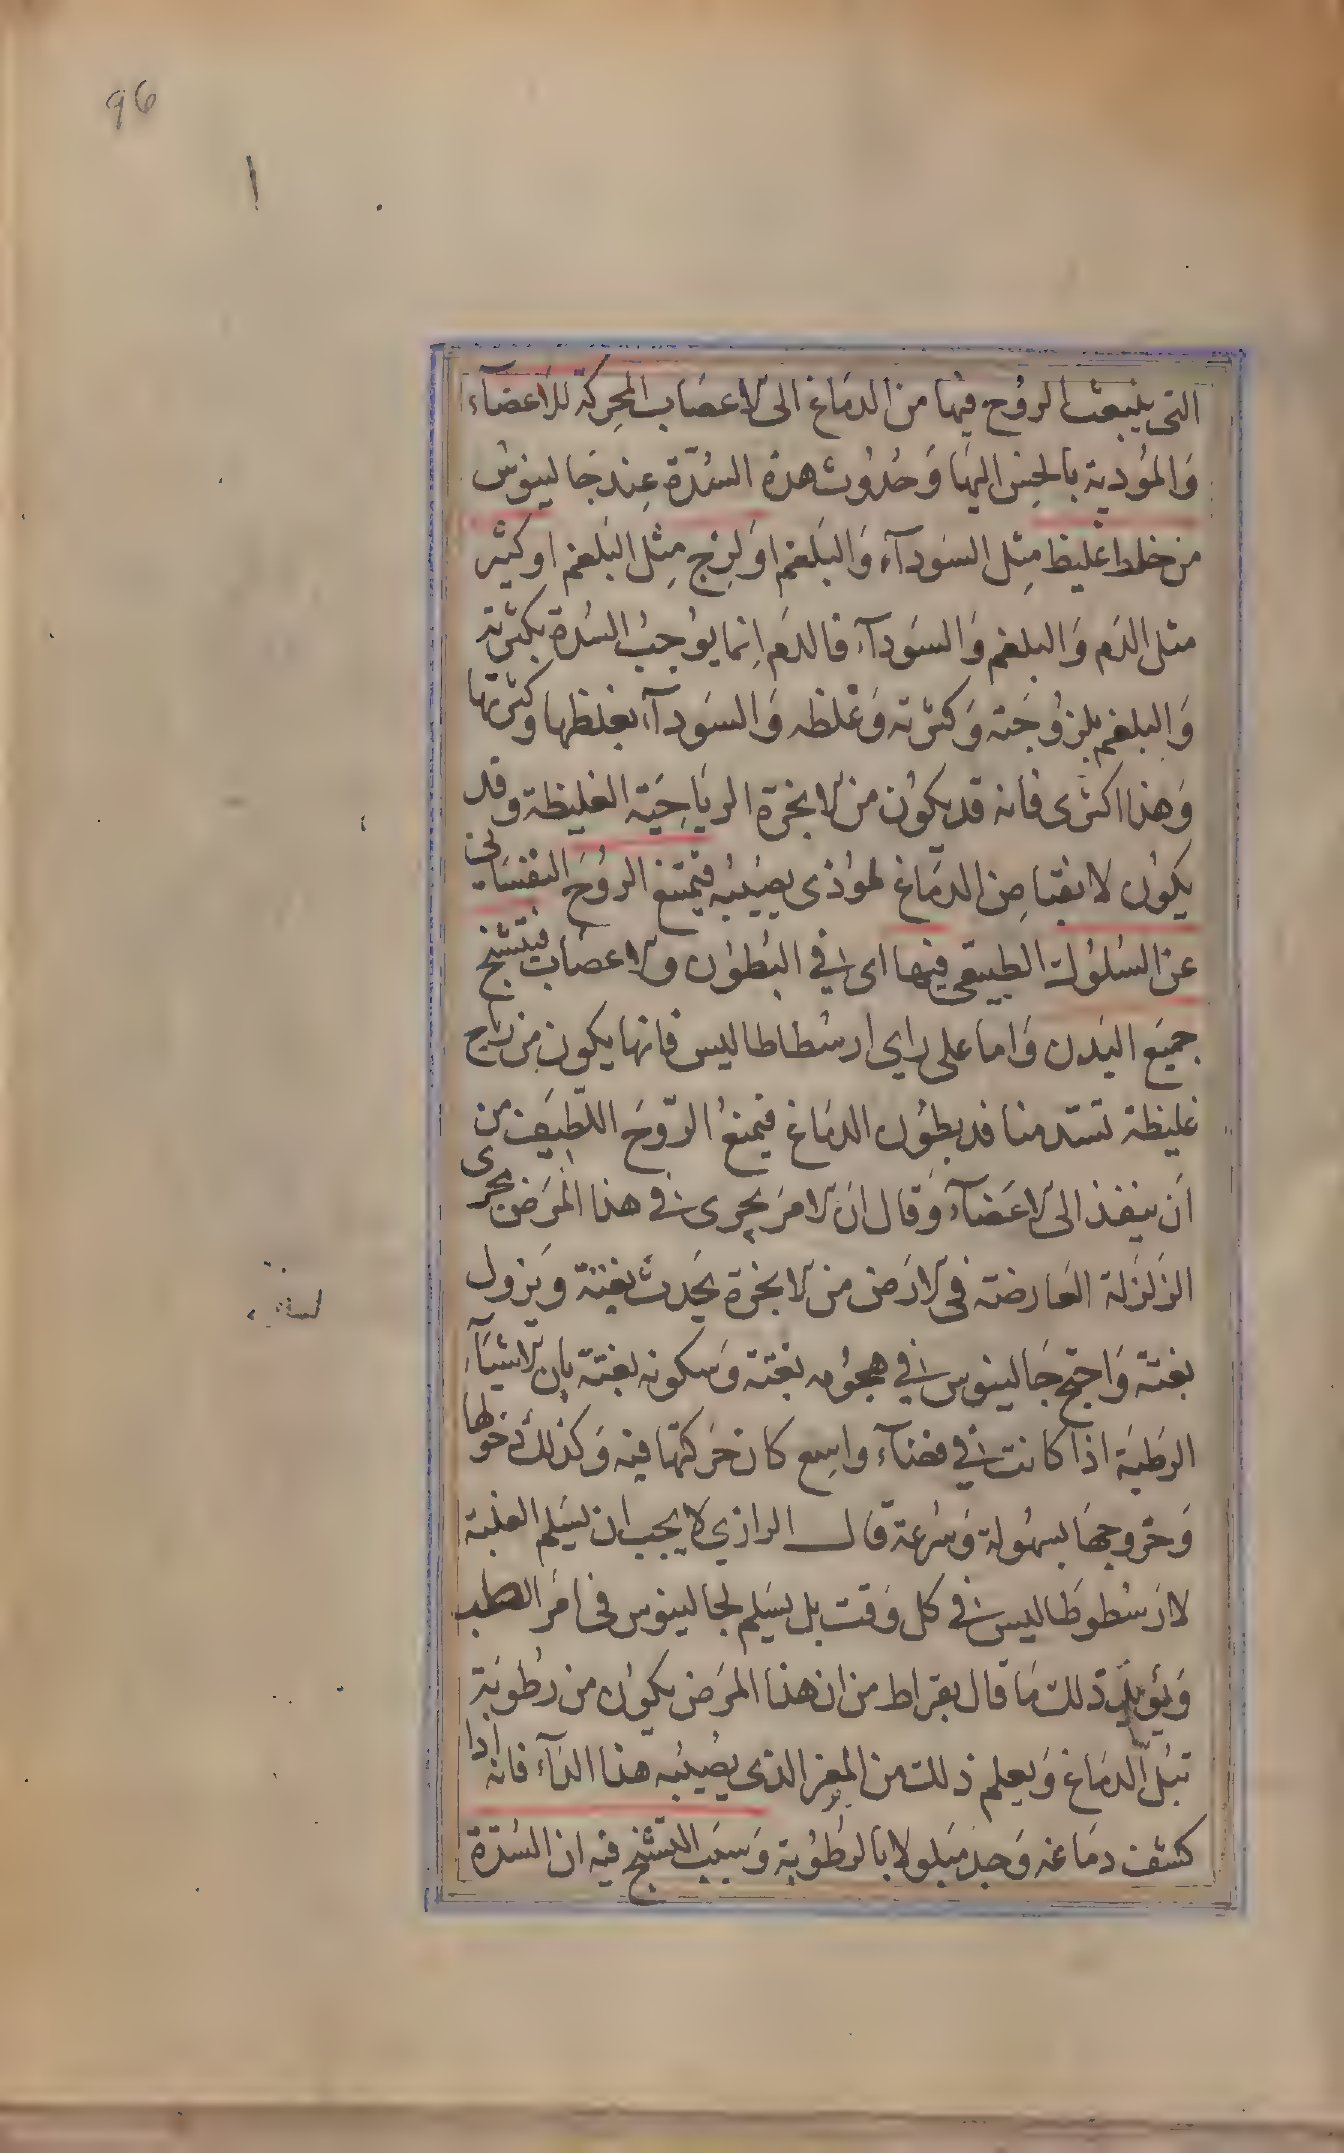 96
ا
التى ينبعث الروح فيها من الدماغ الى الاعصاب المحركة للاعضآء
وَالمؤدية بالحِس اليها وَحدُوث هذة السُدّة عِند جَالينوس
من خلط غليظ مِثل السَودآء وَالبَلغم اوَ لزج مِثل البَلغم او كثير
مثل الدَم وَالبلغم وَالسَودآء فالدم اِنما يوجبُ السُدة بكثرته
وَالبلغم بلزُوجَته وَكثرته وَغلظه وَالسَودآء بغلظها وكثرتها
وَهذا اكثرى فانه قد يكوُن من الابخرة الريَاحِيَة الغليظة وقد
يكوُن لانقباض الدمَاغ لموُذى يصيبُه فيمتنع الروُحَ النفسَانى
عن السُلوُك الطبيعى فيها اى فى البُطوُن والاعصَاب فيتشنج
جميَع البَدن وَاما على راي ارسُطاطاليس فانها يكون من ريَاح
غليظة تسَد منافد بطوُن الدمَاغ فيمنعُ الرّوحَ اللطيَف من
اَن ينفذ الى الاعَضآء وَقال ان الامرَ يجرى فى هذا المرَض مجرى
الزلزَلة العَارضة فى الارَض من الابخرة يحَدث بغتة ويَزول
بغتة وَاحتج جَالينوس فى هجوُمه بغتة وَسكونه بغتة بان الاشيَآء
الرطبَة اذا كانت فى فضآء واسِع كان حَركتها فيه وَكذلك دخولها
وَخروجهَا بسهُولة وَسُرعة قال الرازي لا يجب ان يسَلم الغلبة
لارَسُطوطَاليس فى كل وَقت بل يسَلم لجالينوس فى امَر الطب
وَيؤيد ذلك مَا قال بقراط من ان هذا المرَض يكوُن من رطُوبَة
تبُلّ الدمَاغ وَيعلم ذلك من المعز الذى يصُيبُه هذا الدَآء فانه اذا
كشف دمَاغه وَجدَ مبلولا بالرطُوُبة وَسبَب التشنج فيه ان السُدّة